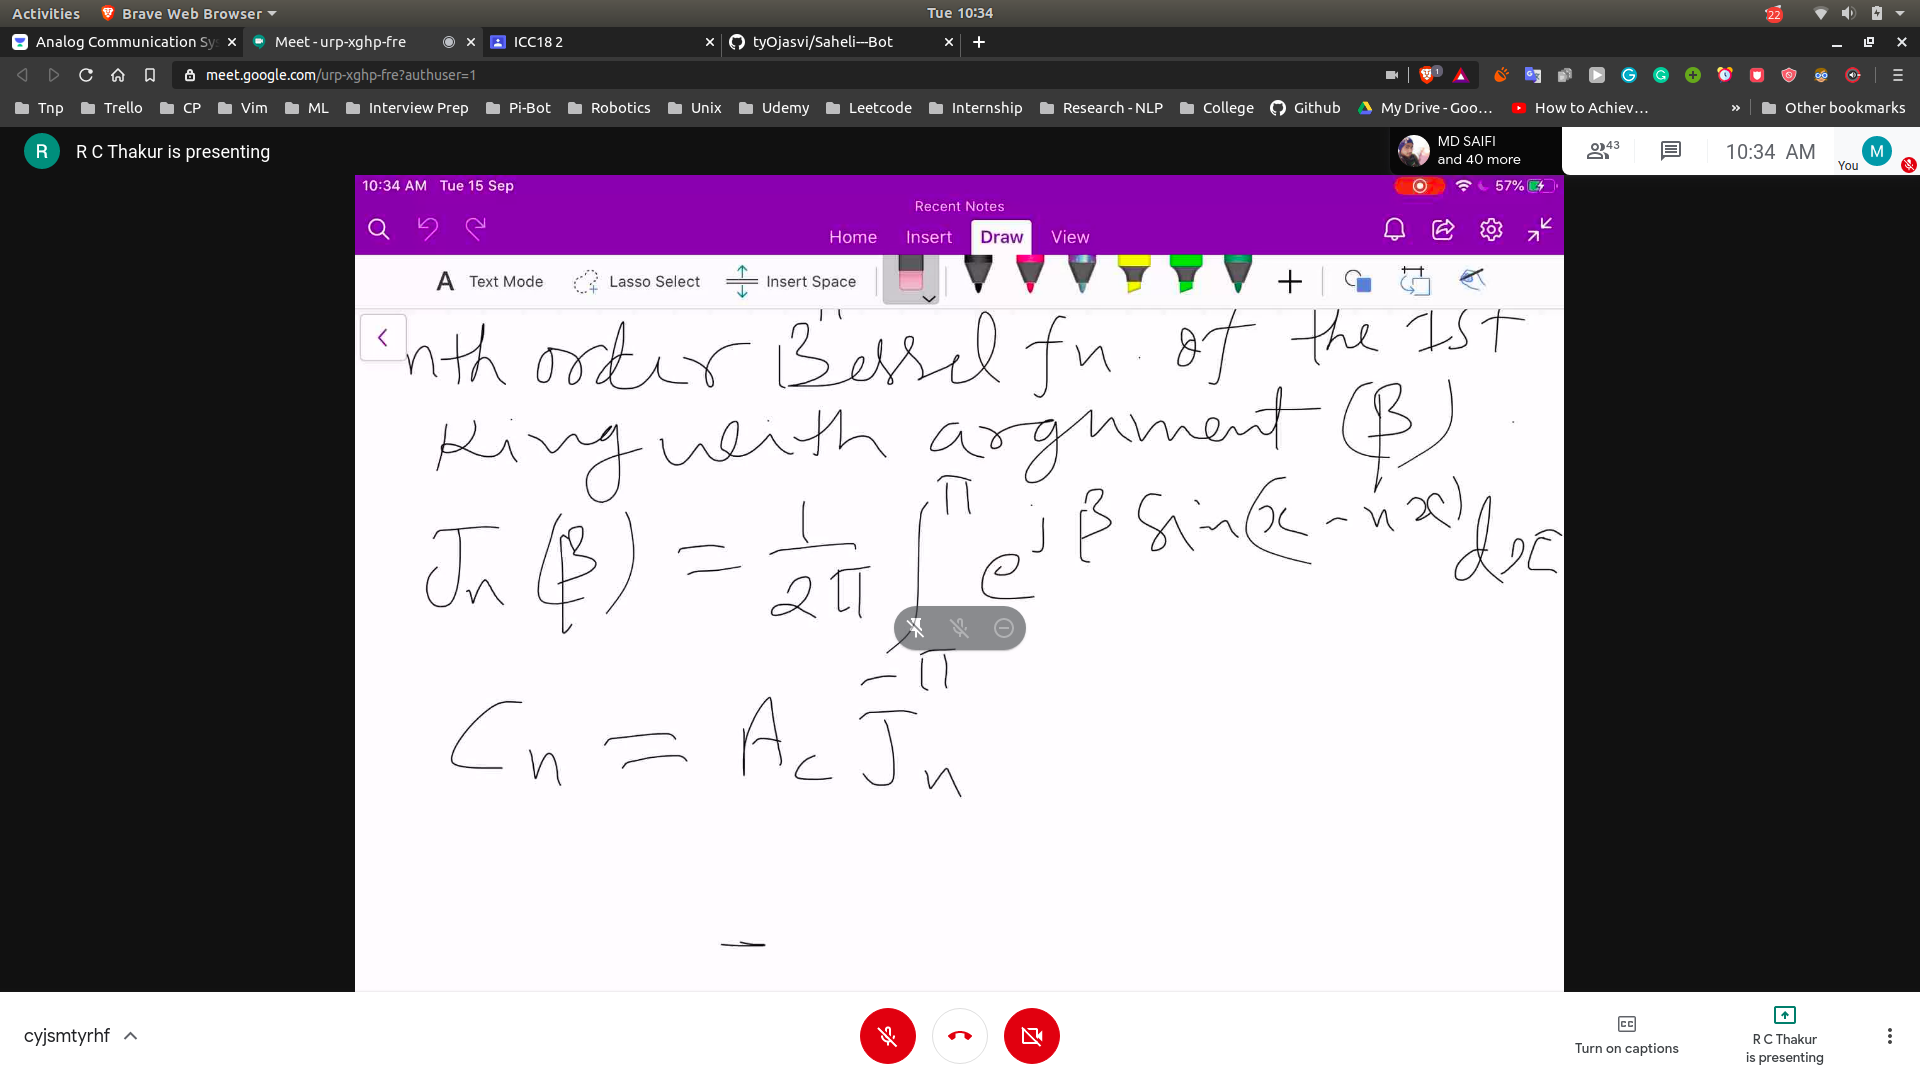 Activities Brave Web Browser Tue 10:34 22
Analog Communication Sy Meet - urp-xghp-fre ICC18 2 tyOjasvi/Saheli---Bot
meet.google.com/urp-xghp-fre?authuser=1 1
Tnp Trello CP Vim ML Interview Prep Pi-Bot Robotics Unix Udemy Leetcode Internship Research - NLP College Github My Drive - Goo... How to Achiev... » Other bookmarks
R R C Thakur is presenting MD SAIFI and 40 more 43 10:34 AM You M
10:34 AM Tue 15 Sep 57%
Recent Notes
Home Insert Draw View
A Text Mode Lasso Select Insert Space
nth order Bessel fn. of the 1st
King weith argument (β)
Jn (β) = 1/2π ∫ -π π e^jβ sin(x - nx) dx
Cn = Ac Jn
cyjsmtyrhf
Turn on captions
R C Thakur
is presenting